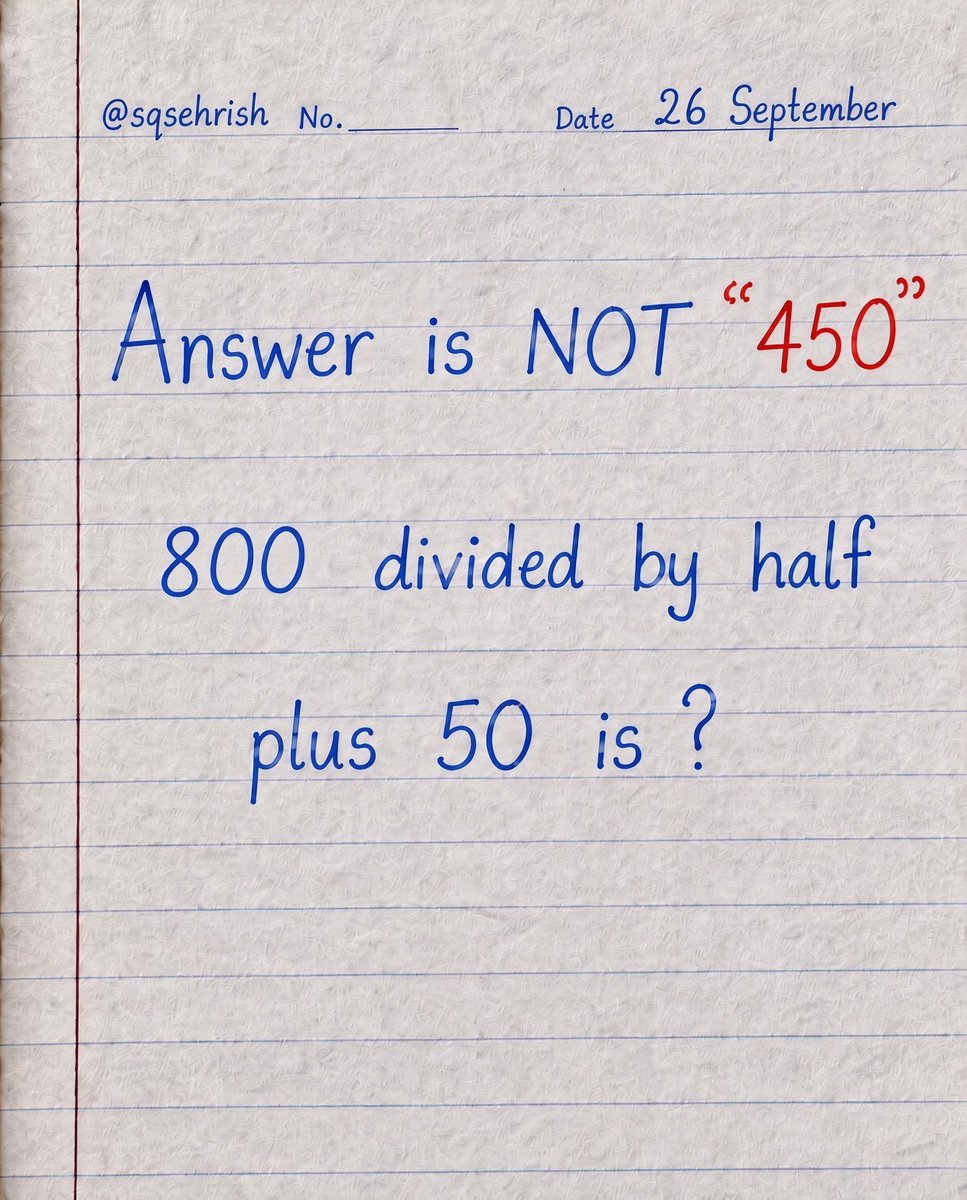 @sqsehrish No. Date 26 September
Answer is NOT “450”
800 divided by half
plus 50 is ?